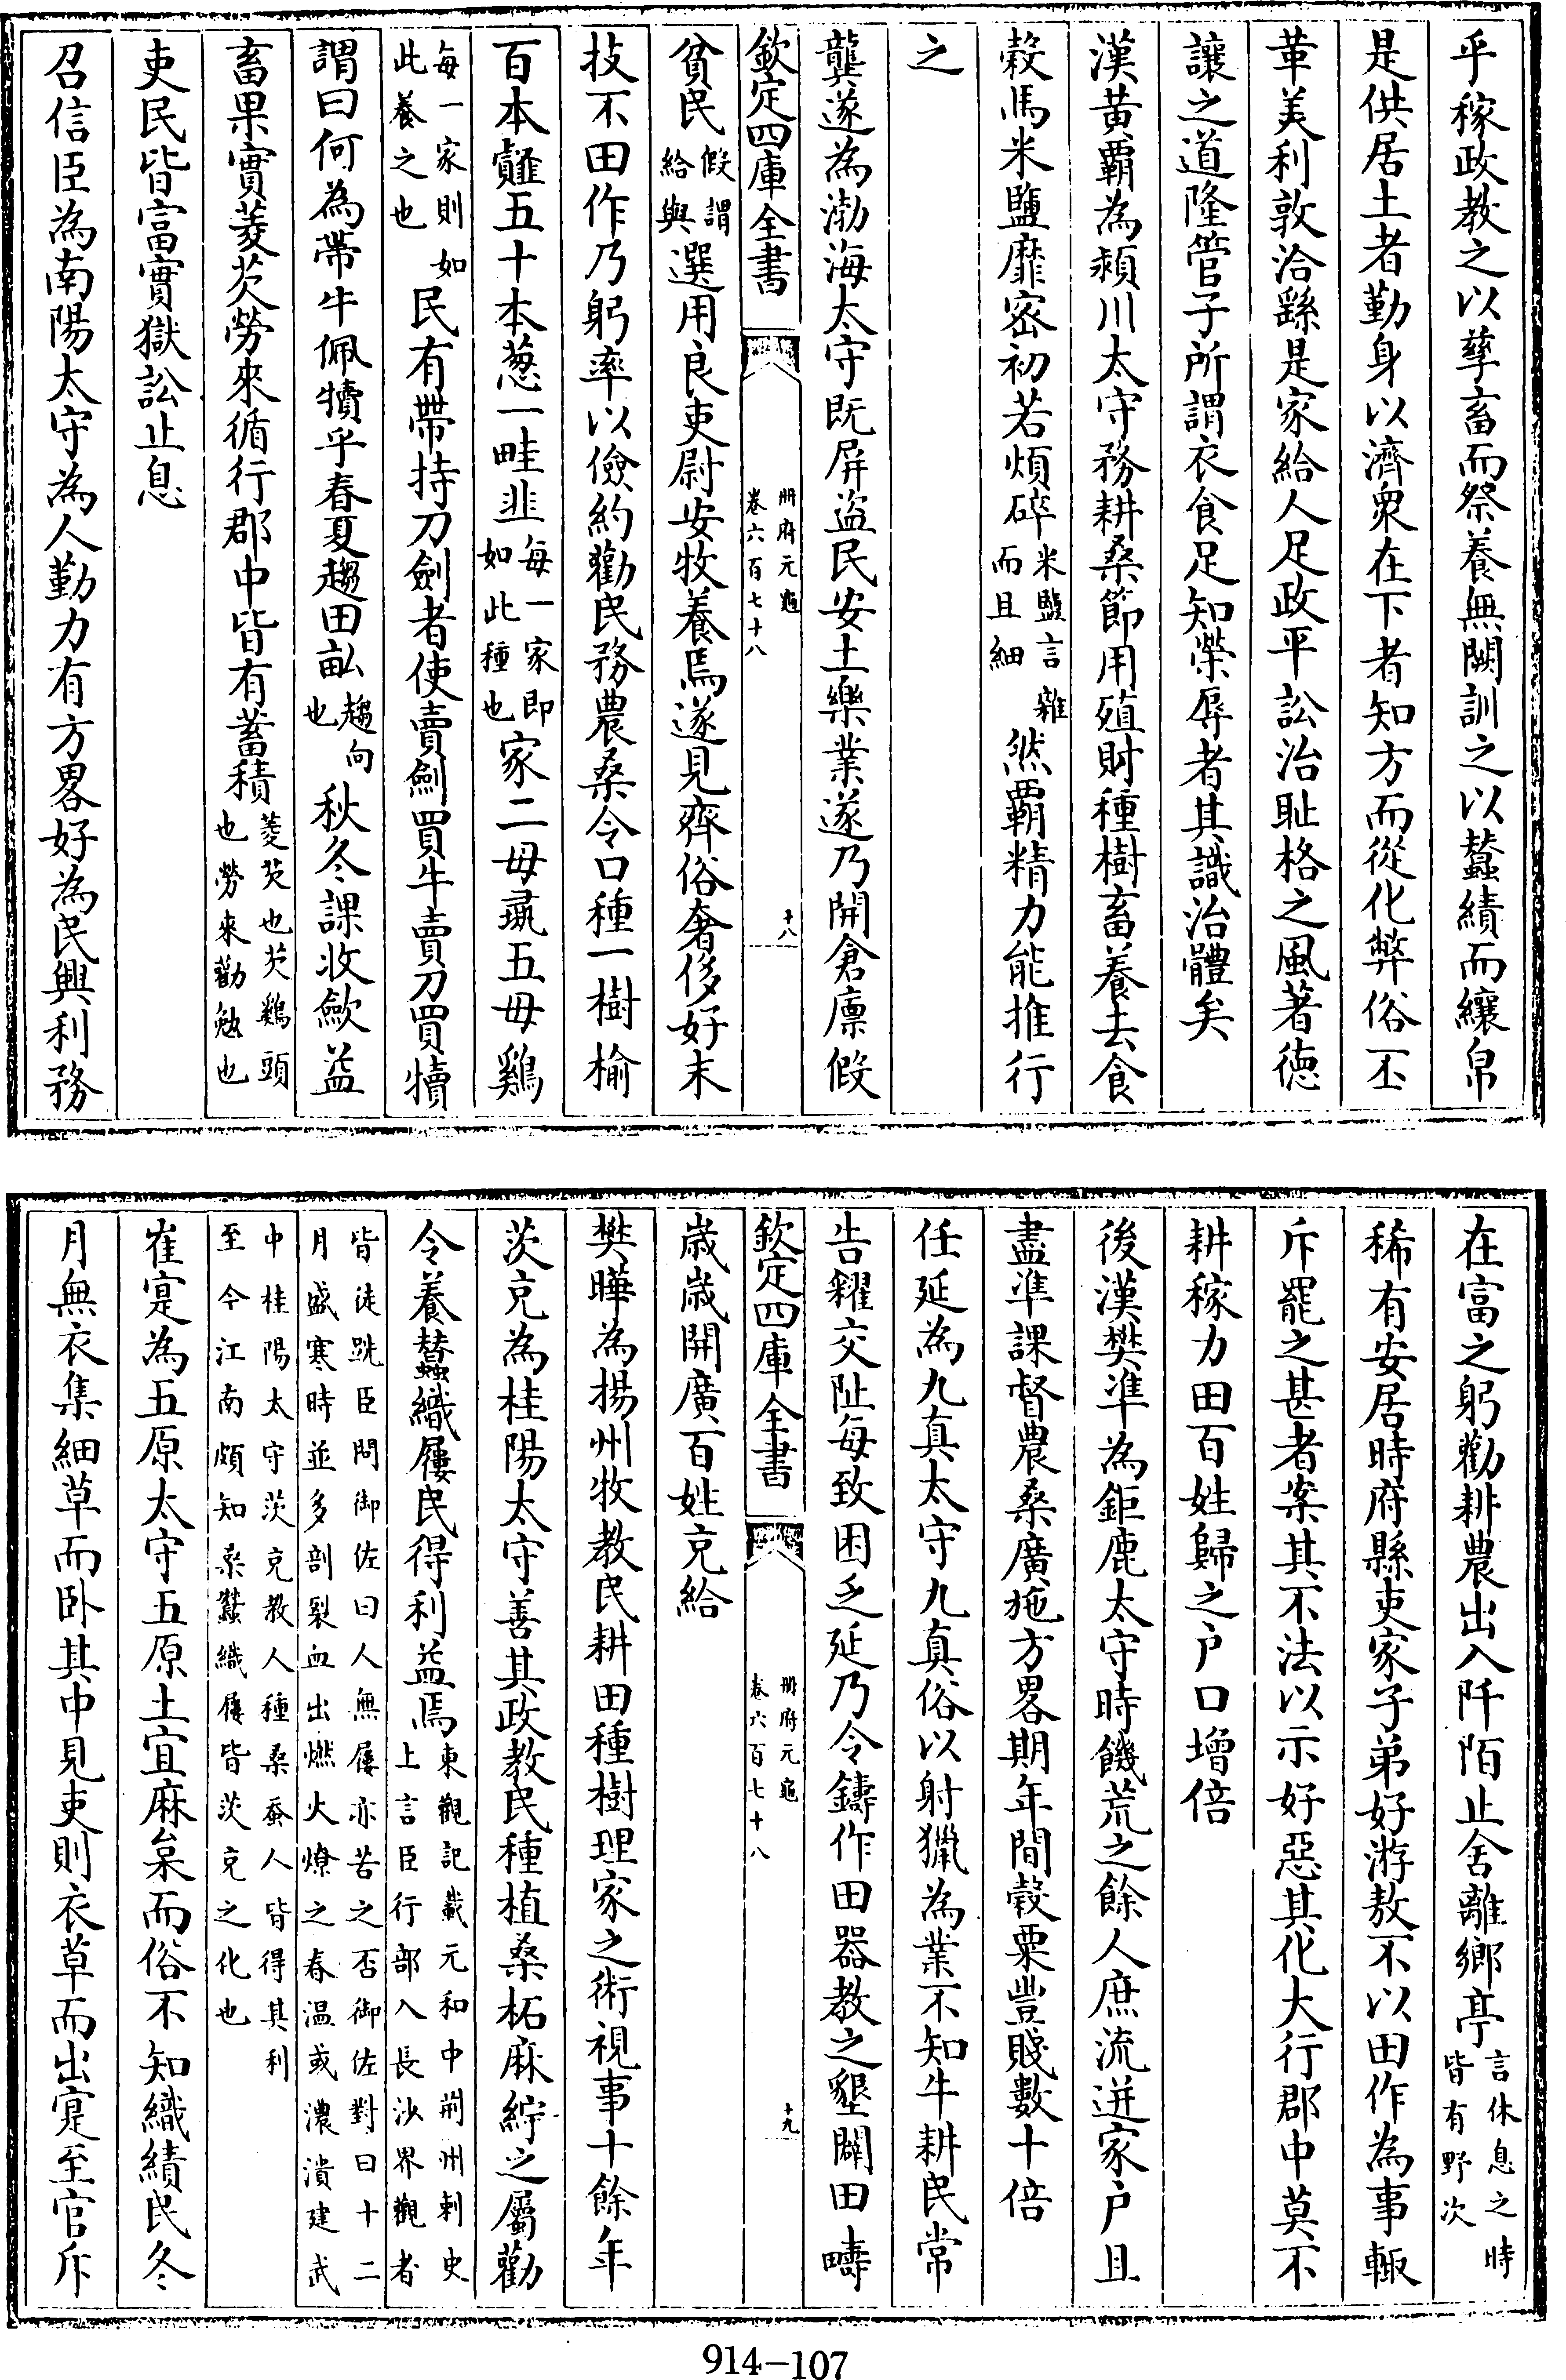 乎稼政教之以孳畜而祭養無闕訓之以蠶績而纕帛
是供居土者勤身以濟衆在下者知方而從化弊俗丕
革美利敦洽繇是家給人足政平訟治耻格之風著德
讓之道隆管子所謂衣食足知榮辱者其識治體矣
漢黄覇為潁川太守務耕桑節用殖財種樹畜養去食
穀馬米鹽靡密初若煩碎米鹽言雜而且細然覇精力能推行
之
龔遂為渤海太守既屏盜民安土樂業遂乃開倉廪假
欽定四庫全書
冊府元龜
卷六百七十八
十八
貧民假謂給與選用良吏尉安牧養焉遂見齊俗奢侈好末
技不田作乃躬率以儉約勸民務農桑令口種一樹榆
百本䪥五十本葱一畦韭每一家即如此種也家二母彘五母鷄
每一家則如此養之也民有帶持刀劍者使賣劍買牛賣刀買犢
謂曰何為帶牛佩犢乎春夏趨田畝趨向也秋冬課收斂益
畜果實菱芡勞來循行郡中皆有蓄積菱芰也芡鷄頭也勞來勸勉也
吏民皆富實獄訟止息
召信臣為南陽太守為人勤力有方畧好為民興利務
在富之躬勸耕農出入阡陌止舍離鄉亭言休息之時皆有野次
稀有安居時府縣吏家子弟好游敖不以田作為事輙
斥罷之甚者案其不法以示好惡其化大行郡中莫不
耕稼力田百姓歸之户口增倍
後漢樊準為鉅鹿太守時饑荒之餘人庶流迸家户且
盡準課督農桑廣施方畧期年間穀粟豐賤數十倍
任延為九真太守九真俗以射獵為業不知牛耕民常
告糴交阯每致困乏延乃令鑄作田器教之墾闢田疇
欽定四庫全書
冊府元龜
卷六百七十八
十九
歲歲開廣百姓克給
樊曄為揚州牧教民耕田種樹理家之術視事十餘年
茨克為桂陽太守善其政教民種植桑柘麻紵之屬勸
令養蠶織屨民得利益焉東觀記載元和中荆州刺史上言臣行部入長沙界觀者
皆徒跣臣問御佐曰人無屨亦苦之否御佐對曰十二月盛寒時並多剖裂血出燃火燎之春温或濃潰建武
中桂陽太守茨克教人種桑蚕人皆得其利至今江南頗知桑蠶織屨皆茨克之化也
崔寔為五原太守五原土宜麻枲而俗不知織績民冬
月無衣集細草而卧其中見吏則衣草而出寔至官斥
914-107